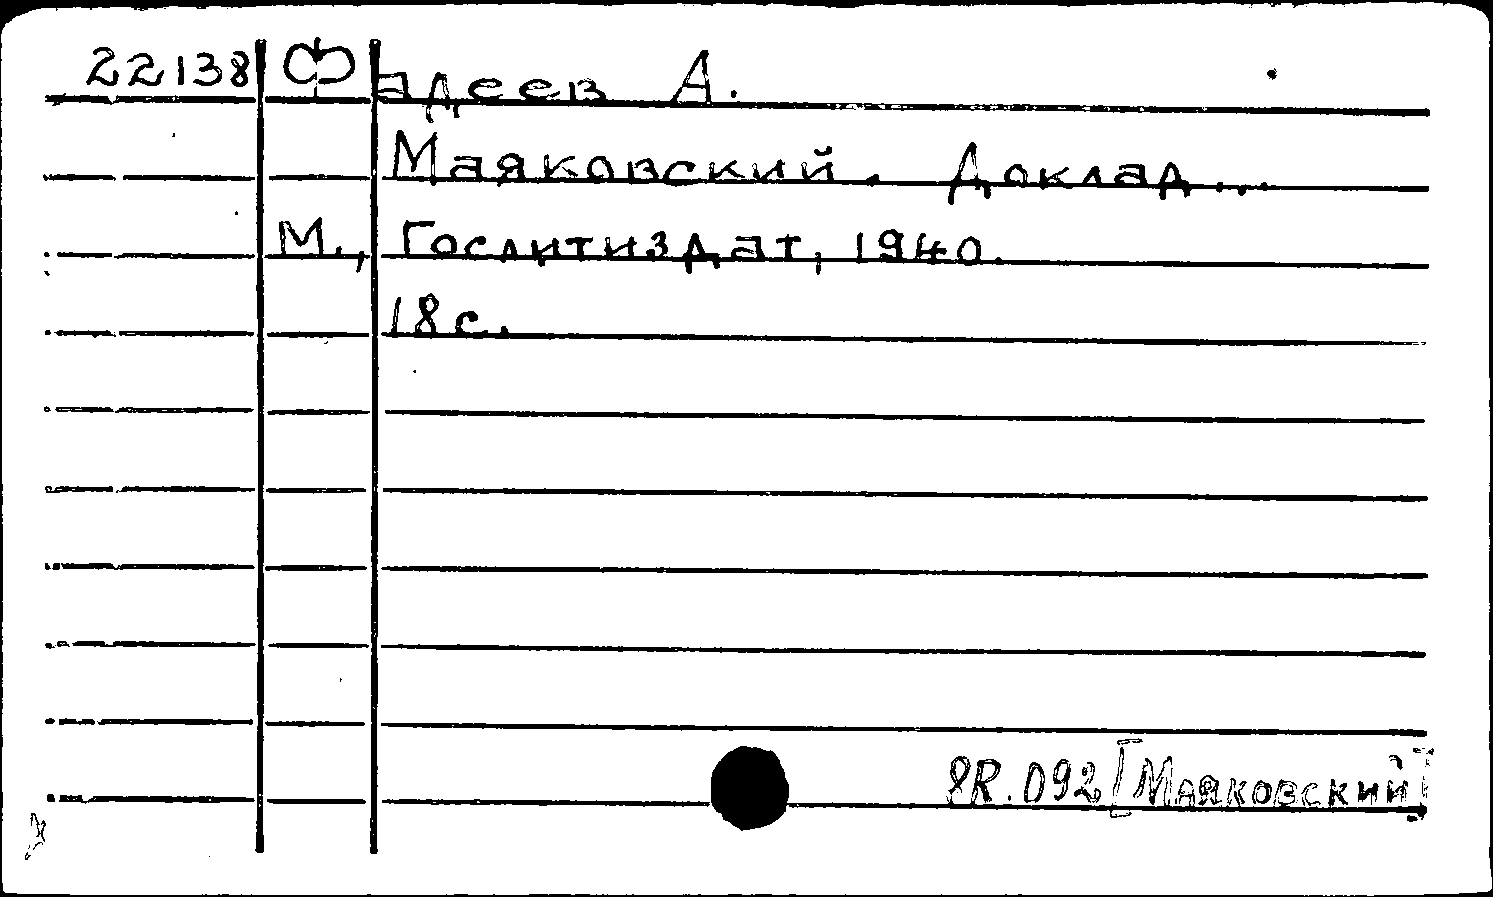 22138 Фадеев А.
Маяковский. Доклад...
М., Гослитиздат, 1940.
18 с.
8R.092[Маяковский]